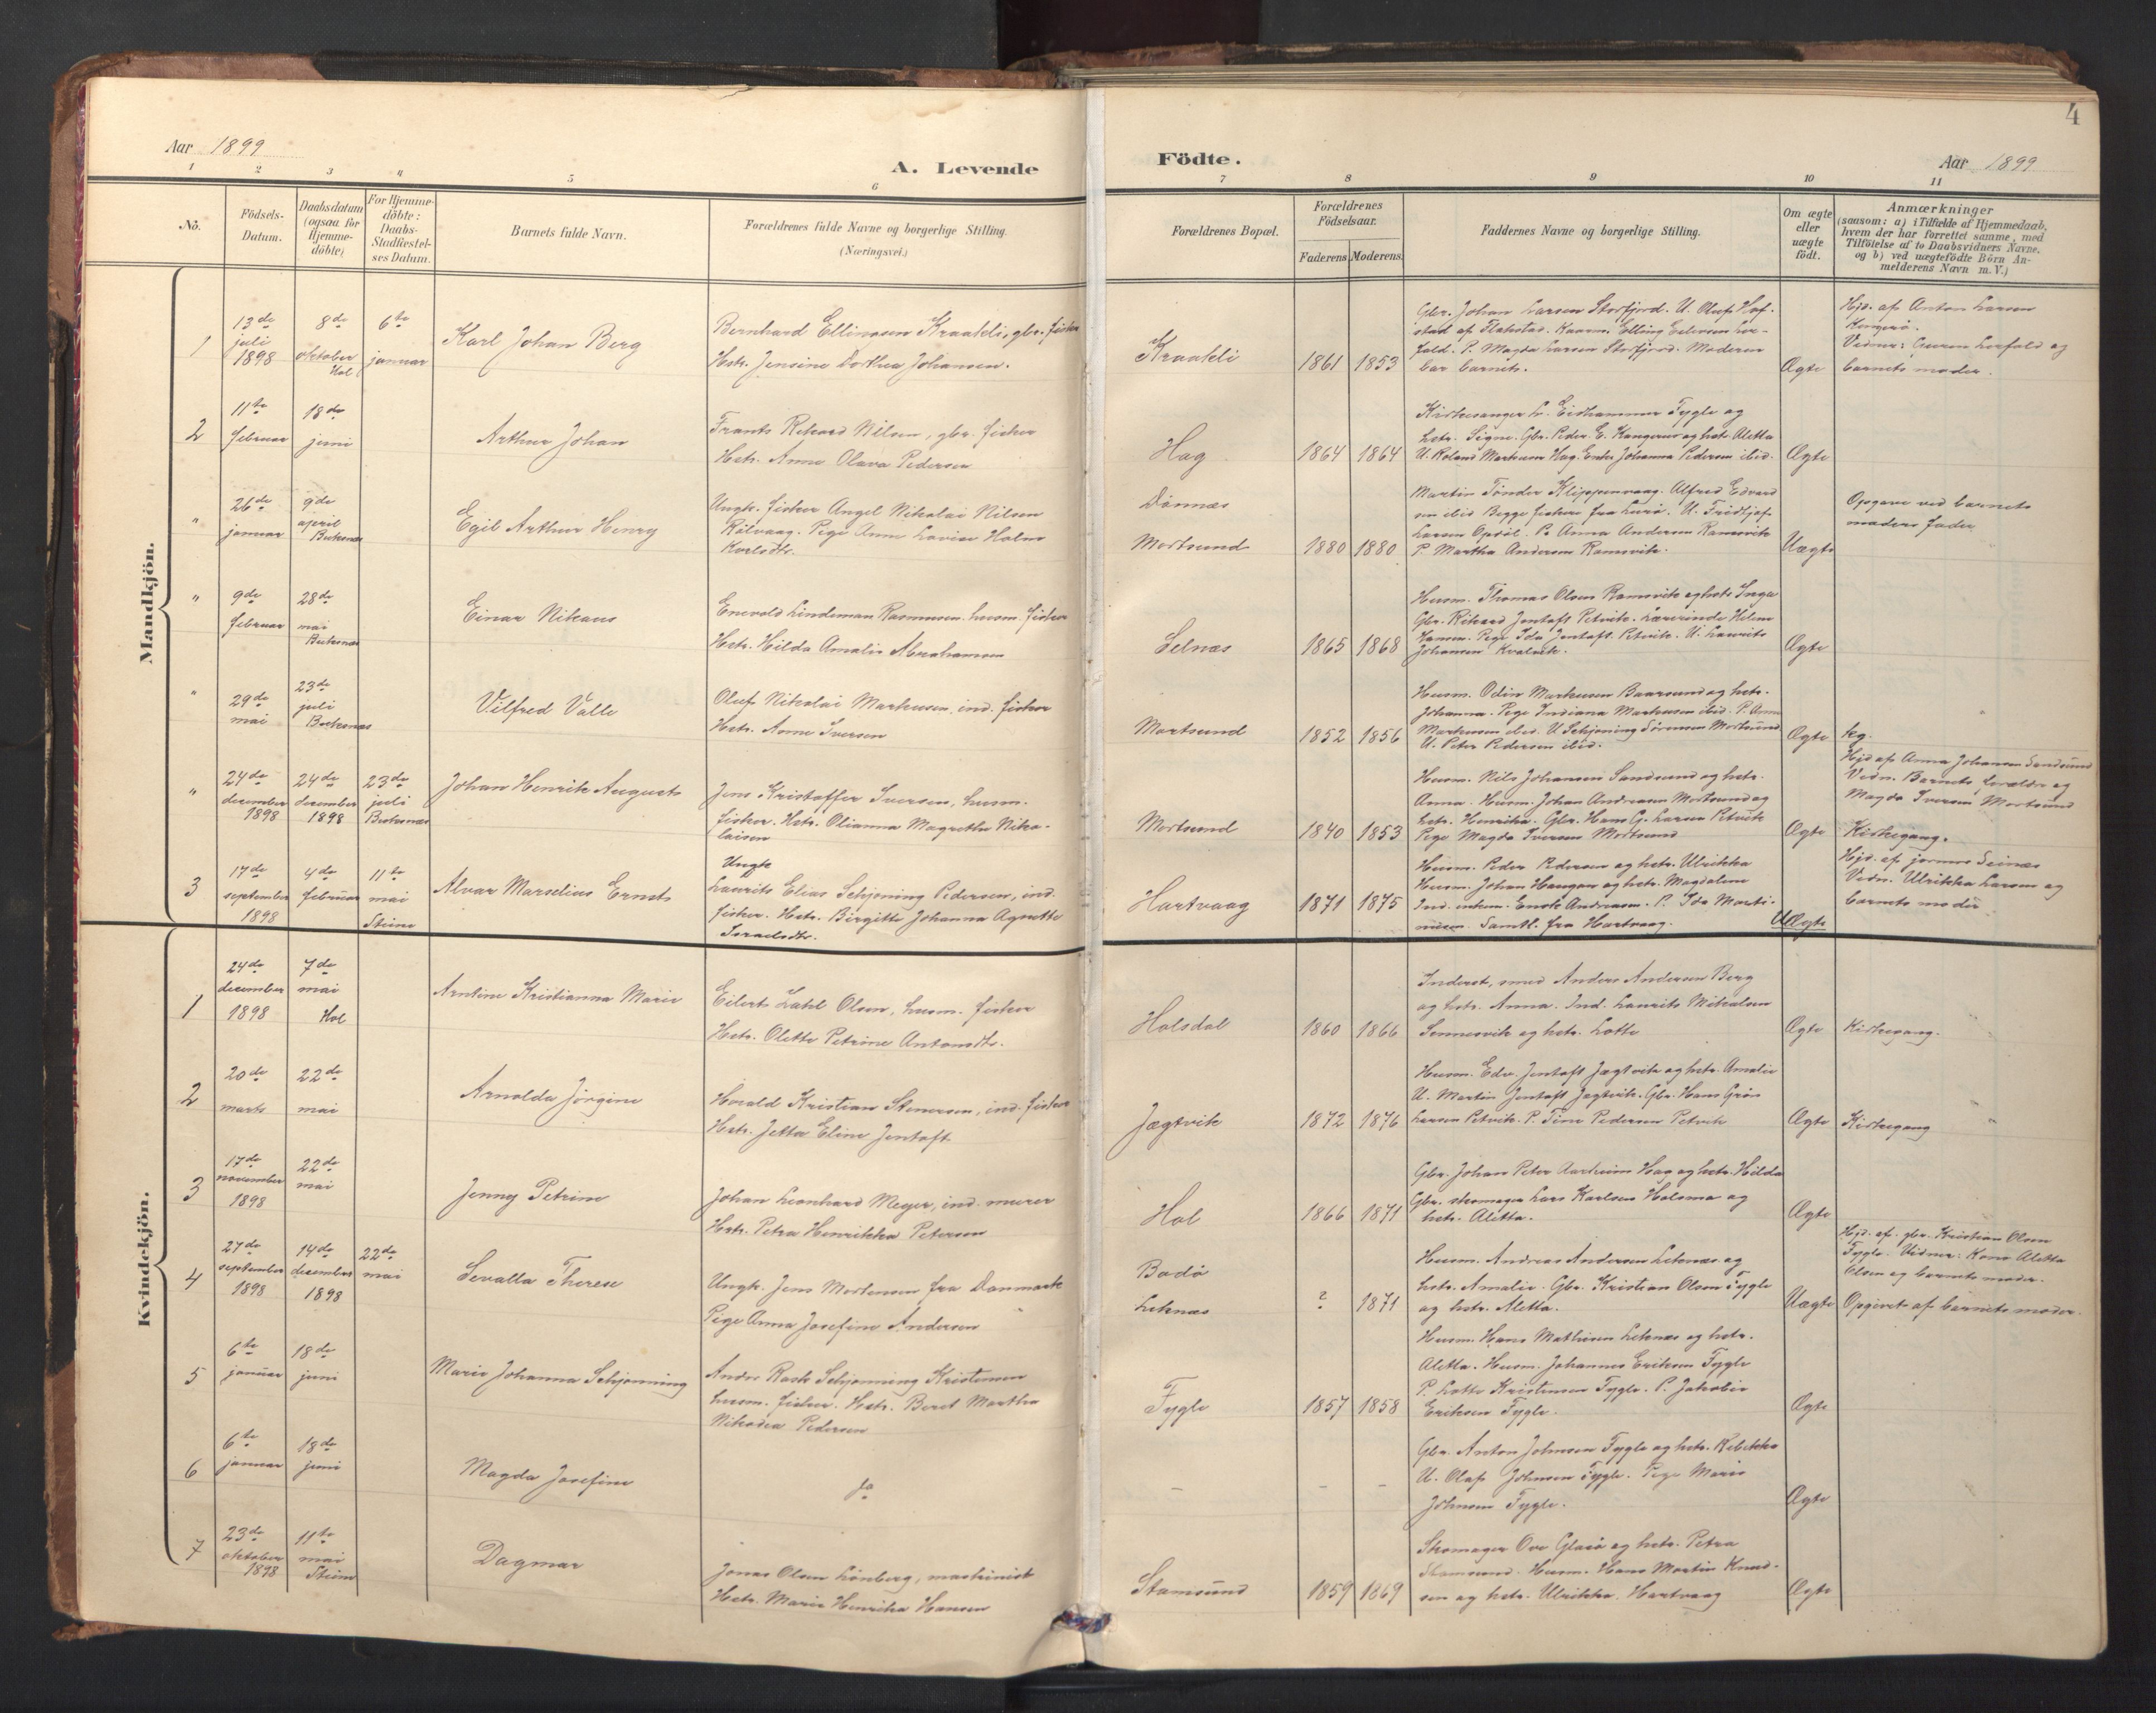 Aar 1899
A. Levende
1 2 3 4 5 6
No.
Födsels-
Datum.
Daabsdatum
(ogsaa for
Hjemme-
döbte)
For Hjemme-
döbte:
Daabs-
Stadfæstel-
ses Datum.
Barnets fulde Navn.
Forældrenes fulde Navne og borgerlige Stilling.
(Næringsvei.)
Mandkjön.
1
13de
juli
1898
8de
oktober
Hol
6te
januar
Karl Johan Berg
Bernhard Ellingsen Kraakli, gbr. fisker
Hstr. Jensine Dorthea Johansen.
2
11te
februar
18de
juni
Arthur Johan
Frants Rikard Nilsen, gbr. fisker
Hstr. Anne Olava Pedersen
"
26de
januar
9de
april
Buksnes
Egil Arthur Henry
Ungk. fisker Angel Nikolai Nilsen
Rölvaag. Pige Anne Lovise Holm
Karlsdtr.
"
9de
februar
28de
mai
Buksnes
Einar Nikaus
Enevold Lindeman Rasmussen husm. fisker
Hstr. Hilda Amalie Abrahamsen
"
29de
mai
23de
juli
Buksnæs
Vilfred Valle
Oluf Nikolai Markusen, ind. fisker
Hstr. Anne Iversen
"
24de
december
1898
24de
december
1898
23de
juli
Buksnæs
Johan Henrik August
Jens Kristoffer Iversen, husm.
fisker. Hstr. Olianna Magrethe Niko-
laisen
3
17de
september
1898
4de
februar
11te
mai
Steine
Alvar Marselius Ernst
Ungk
Laurits Elias Schjöning Pedersen, ind.
fisker. Hstr. Birgitte Johanna Agnette
Israelsdtr.
Kvindekjön.
1
24de
december
1898
7de
mai
Hol
Arntine Kristianna Marie
Eilert Zahl Olsen, husm. fisker
Hstr. Olette Petrine Antonsdtr.
2
20de
marts
22de
mai
Arnolda Jörgine
Hovald Kristian Stenersen, ind. fisker
Hstr. Jetta Eline Jentoft
3
17de
november
1898
22de
mai
Jenny Petrine
Johan Leonhard Meyer, ind. murer
Hstr. Petra Henrikka Petersen
4
27de
september
1898
14de
december
1898
22de
mai
Sevalla Therese
Ungk. Jens Mortensen fra Danmark
Pige Anna Josefine Andersen
5
6te
januar
18de
juni
Marie Johanna Schjønning
Andor Rask Schjønning Kristensen
husm. fisker. Hstr. Beret Martha
Nikodea Pedersen
6
6te
januar
18de
juni
Magda Josefine
do
7
23de
oktober
1898
11te
mai
Steine
Dagmar
Jonas Olsen Lönberg, maskinist
Hstr. Marie Henrikka Hansen
4
Födte.
Aar 1899
7 8 9 10 11
Forældrenes Bopæl.
Forældrenes
Födselsaar.
Faderens Moderens
Faddernes Navne og borgerlige Stilling.
Om ægte
eller
uægte
födt.
Anmærkninger
(saasom: a) i Tilfælde af Hjemmedaab,
hvem der har forrettet samme, med
Tilföielse af to Daabsvidners Navne,
og b) ved uægtefödte Börn An-
melderens Navn m. V.)
Kraakli
1861 1853
Gbr. Johan Larsen Storfjord. U. Oluf Hof-
stad af Flakstad.
P. Magda Larsen Storfjord. Moderen
bar barnet.
Ægte
Hjd. af Anton Larsen
Vidner: Guren Lorfald og
barnets moder.
Hag
1864 1864
Kirkesanger L. Eidhammer Fygle og
hstr. Signe. Gbr. Peder E. Kangerur og hstr. Aletta
U. Roland Markusen Hag. Enke Johanna Pedersen ibid.
Ægte
Dönnæs
Mortsund
1880 1880
Martin Tönder Klippenvaag. Alfred Edvard
sen ibid Begge fiskere fra Lurö. U. Fridtjof
Larsen Opdöl. P. Anna Andersen Ramsvik
P. Martha Andersen Ramsvik.
Uægte
Opgave ved barnets
moders fader
Selnæs
1865 1868
Husm. Thomas Olsen Ramsvik og hstr Inga
Gbr. Rikard Jentoft Petvik. Lærerinde Helene
Hansen. Pige Ida Jentoft Petvik. U. Laurits
Johansen Kvalvik.
Ægte
Mortsund
1852 1856
Husm. Odin Markusen Baarsund og hstr.
Johanna. Pige Indiana Markusen ibid. P. Anne
Markusen ibid. U Schjöning Sörensen Mortsund
U. Peter Pedersen ibid.
Ægte
kg.
Mortsund
1840 1853
Husm. Nils Johansen Sandsund og hstr.
Anna. Husm. Johan Andreasen Mortsund og
hstr. Henrikka. Gbr. Hans G. Larsen Petvik
Pige Magda Iversen Mortsund
Ægte
Hjd af Anna Johansen Sandsund
Vidn. Barnets forældre og
Magda Iversen Mortsund
Kirkegang.
Hartvaag
1871 1875
Husm. Peder Pedersen og hstr. Ulrikka
Husm. Johan Haugan og hstr. Magdalene
Ind. enkem. Enok Andreasen. P. Ida Marti-
nusen. Samtl. fra Hartvaag.
UÆgte
Hjd. af jormor Seinæs
Vidn. Ulrikka Larsen og
barnets moder
Holsdal
1860 1866
Inderst, smed Anders Andersen Berg
og hstr. Anna. Ind. Laurits Mikalsen
Sennesvik og hstr. Lotte
Ægte
Kirkegang.
Jægtvik
1872 1876
Husm. Edv. Jentoft Jægtvik og hstr. Amalie
U. Martin Jentoft Jægtvik. Gbr. Hans Grön
Larsen Petvik. P. Tine Pedersen Petvik
Ægte
Kirkegang
Hol
1866 1871
Gbr. Johan Peter Aarheim Hag og hstr. Hilda
Gbr. skomager Lars Karlsen Holsmo og
hstr. Aletta.
Ægte
Bodö
Leknæs
? 1871
Husm. Andreas Andersen Leknæs og
hstr. Amalie. Gbr. Kristian Olsen Fygle
og hstr. Aletta.
Uægte
Hjd. af gbr. Kristian Olsen
Fygle. Vidner: Kone Aletta
Olsen og barnets moder.
Opgivet af barnets moder.
Fygle
1857 1858
Husm. Hans Mathisen Leknæs og hstr.
Aletta. Husm. Johannes Eriksen Fygle
P. Lotte Kristensen Fygle. P. Jakobie
Eriksen Fygle.
Ægte
- - -
Gbr. Anton Johnsen Fygle og hstr. Rebekka
U. Olaf Johnsen Fygle. Pige Marie
Johnsen Fygle.
Ægte
Stamsund
1859 1869
Skomager Ove Glasö og hstr. Petra
Stamsund. Husm. Hans Martin Knud-
sen og hstr. Ulrikka. Hartvaag
Ægte